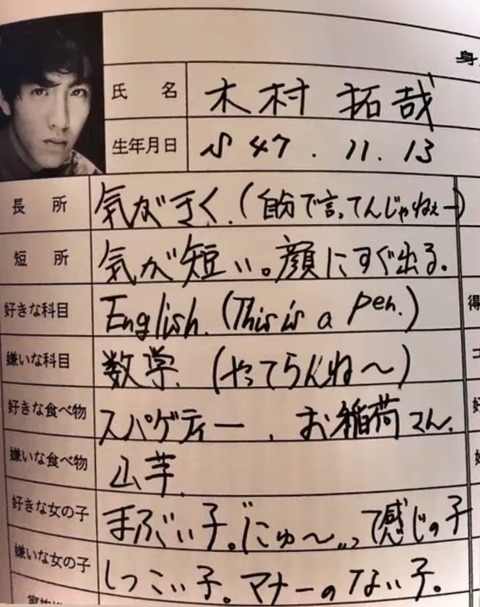 身
氏 名 木村 拓哉
生年月日 S 47 . 11 . 13
長 所 気がきく.(自分で言ってんじゃねぇー)
短 所 気が短い。顔にすぐ出る.
好きな科目 English. (This is a pen.) 得
嫌いな科目 数学. (やってらんね〜)
好きな食べ物 スパゲティー . お稲荷さん.
嫌いな食べ物 山芋.
好きな女の子 まぶい子。にゅ〜...って感じの子
嫌いな女の子 しつこい子。マナーのない子。